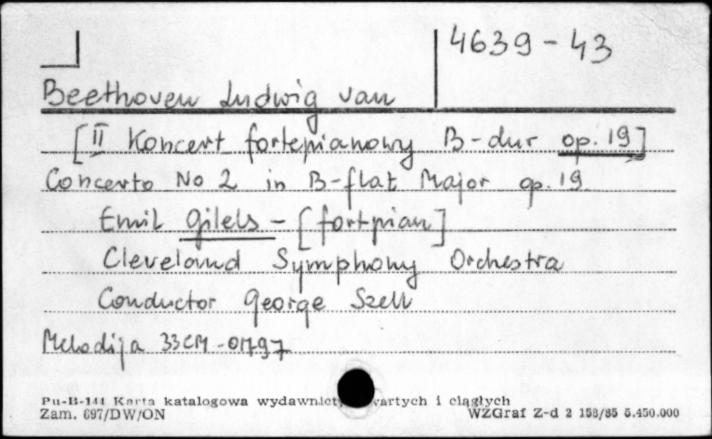 4639-43
Beethoven Ludwig van
[II Koncert fortepianowy B-dur op. 19]
Concerto No 2 in B-flat Major op. 19
Emil Gilels - [fortpian]
Cleveland Symphony Orchestra
Conductor George Szell
Melodija 33CM-01797
Pu-B-144 Karta katalogowa wydawnict wartych i ciągłych
Zam. 697/DW/ON WZGraf Z-d 2 158/85 5.450.000